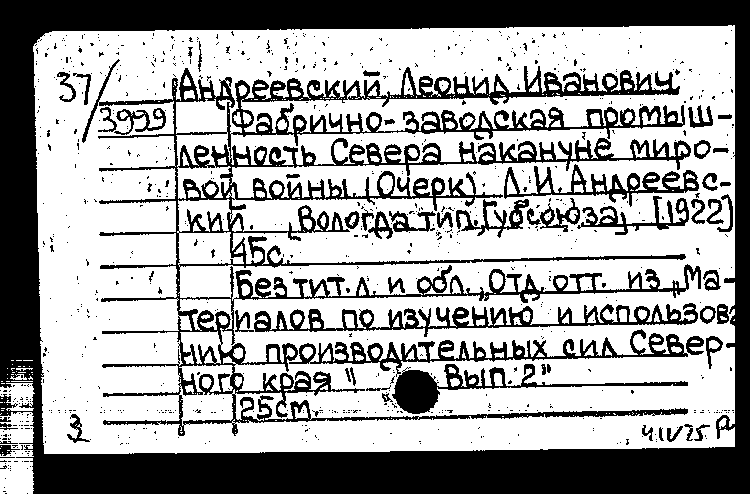 37/
3999
Андреевский, Леонид Иванович.
Фабрично-заводская промыш-
ленность Севера накануне миро-
вой войны. (Очерк). Л.И. Андреевс-
кий. [Вологда тип. "Губсоюза], [1922]
45с.
Без тит. л. и обл. "Отд. отт. из "Ма-
териалов по изучению и использова
нию производительных сил Север-
ного края" Вып. 2"
25см.
32
4 IV 75